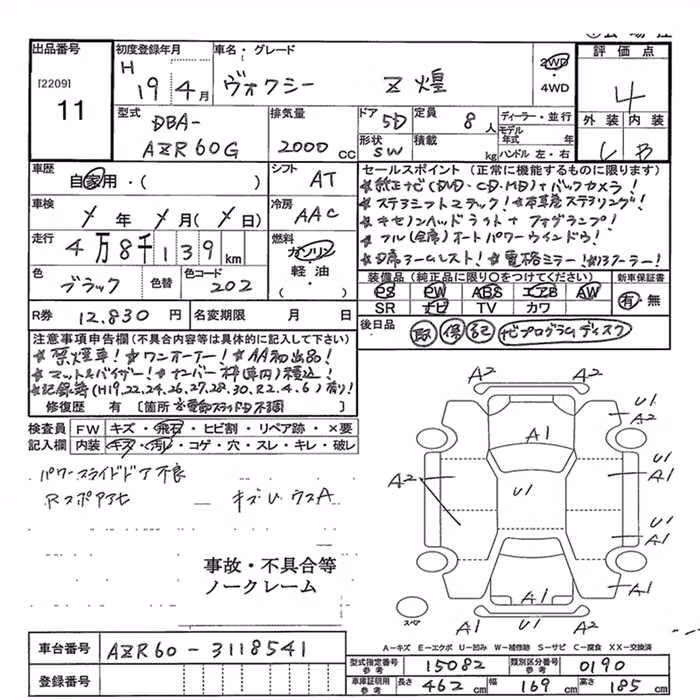 出品番号 初度登録年月 車名・グレード 評価点
[2209]
11
H 19 4月 ヴォクシー Z 煌 2WD・4WD 4
型式 DBA-AZR60G
排気量 2000 CC
ドア 5D
定員 8人
形状 SW
積載 kg
ディーラー・並行
モデル年式 年
ハンドル 左・右
外装 内装
C B
車歴 自家用・( )
シフト AT
車検 年 月( 日)
冷房 AAC
走行 4万8千139km
燃料 ガソリン 軽油・( )
色 ブラック 色替
色コード 202
R券 12,830円
名変期限 月 日
セールスポイント(正常に機能するものに限ります)
★純正ナビ(DVD・CD・MD)+バックカメラ!
★ステアシフトマチック!★本革巻ステアリング!
★キセノンヘッドライト+フォグランプ!
★フル(全席)オートパワーウインドウ!
★電格ミラー!
装備品(純正品に限り○をつけてください) 新車保証書
PS PW ABS エアB AW 有・無
SR ナビ TV カワ
後日品 取 保 記 ナビプログラムディスク
注意事項申告欄(不具合内容等は具体的に記入して下さい)
★禁煙車!★ワンオーナー!★AA初出品!
★マット&バイザー!★ナンバー枠(車内)積込!
★記録簿(H19,22,24,26,27,28,30,R2,4,6)有り!
修復歴 有 [箇所 ※電動スライドD不調 ]
検査員記入欄
FW キズ・飛石・ヒビ割・リペア跡・×要
内装 キズ・汚れ・コゲ・穴・スレ・キレ・破レ
パワースライドドア不良
キズ U ウスA
事故・不具合等
ノークレーム
A2 A2
U1
A2
A1
A2 U1 U1
A1
U1
A1
A1
A1
A1 U1
スペア
車台番号 AZR60-3118541
登録番号
A－キズ E－エクボ U－凹み W－補修跡 S－サビ C－腐食 XX－交換済
型式指定番号 参考 15082 類別区分番号 参考 0190
車庫証明用 参考 長さ 462cm 幅 169cm 高さ 185cm